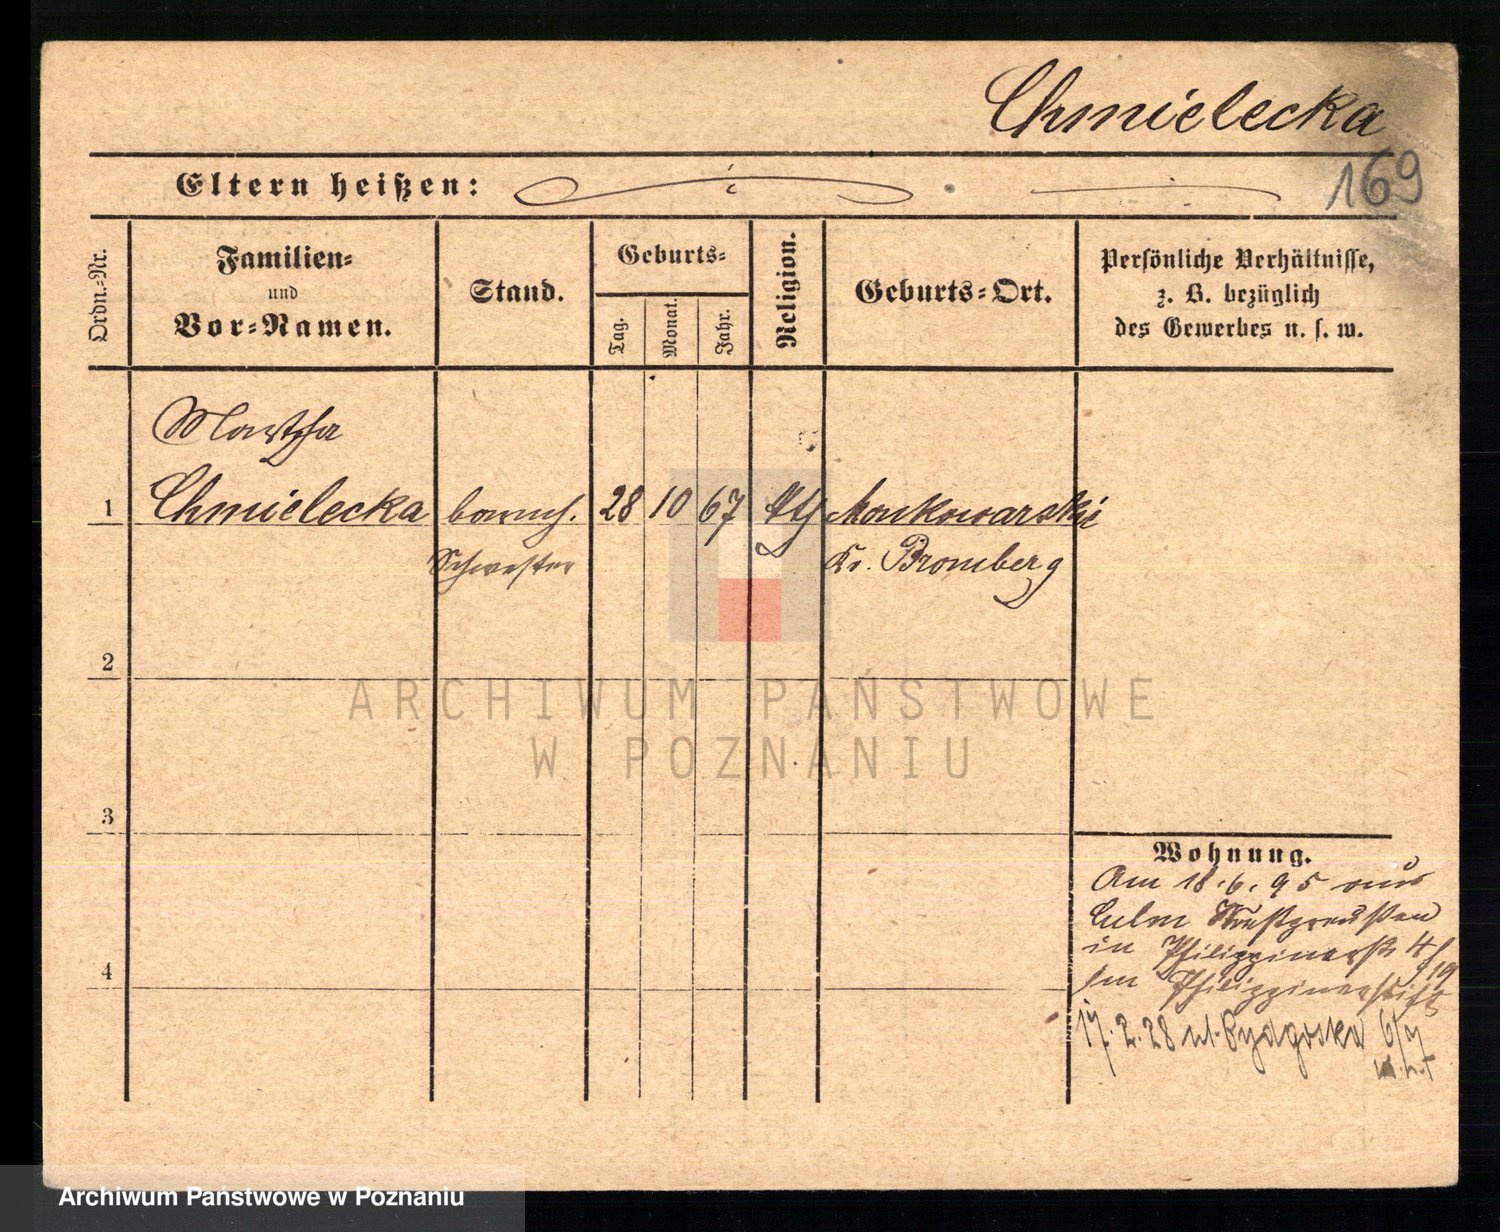 Chmielecka
169
Eltern heißen:
Ordn.-Nr.
Familien-
und
Vor-Namen.
Stand.
Geburts-
Tag.
Monat.
Jahr.
Religion.
Geburts-Ort.
Persönliche Verhältnisse,
z. B. bezüglich
des Gewerbes u. s. w.
Martha
1 Chmielecka barmh. 28 10 67 Maskowarskie
Schwester Kr. Bromberg
2
ARCHIWUM PAŃSTWOWE
W POZNANIU
3
Wohnung.
Am 18.6.95 aus
Culm Westpreußen
in Philippinerstr 4
Im Philippinerstift
4
17.2.28 ul. Bydgoska 6/7
Archiwum Państwowe w Poznaniu